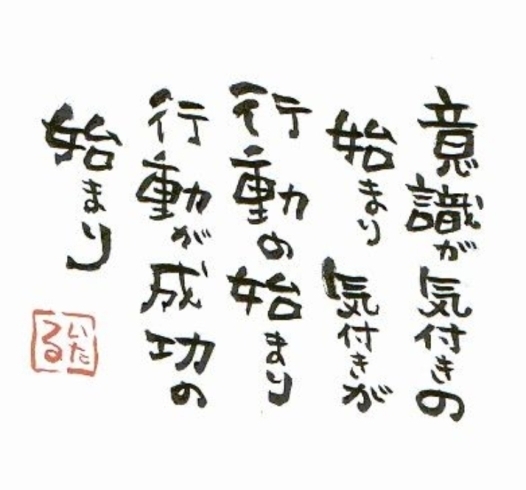 意識が気付きの
始まり 気付きが
行動の始まり
行動が成功の
始まり
いたる